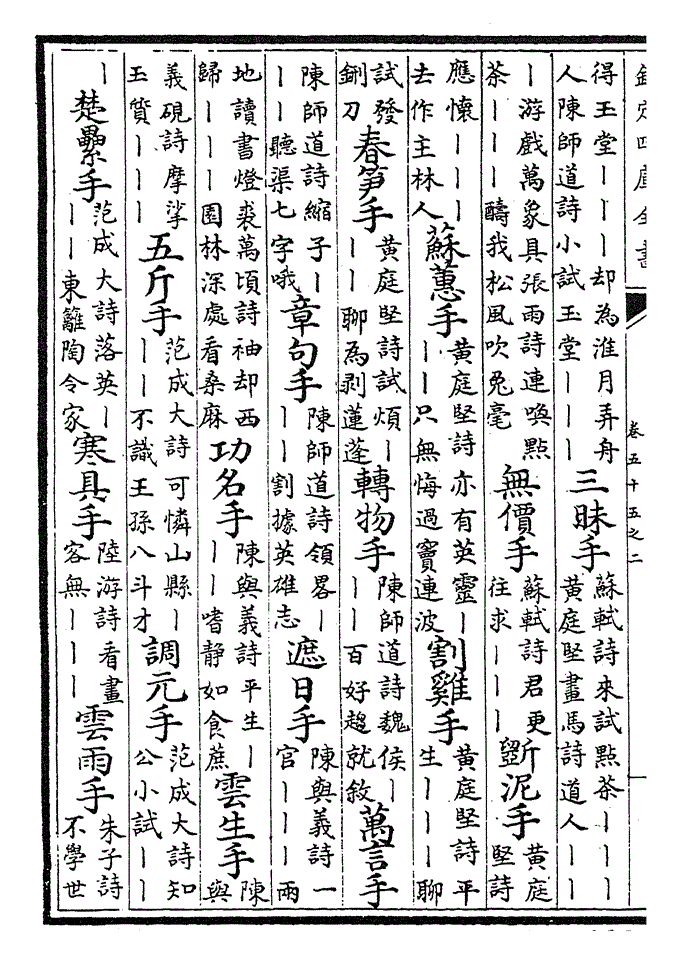 欽定四庫全書
卷五十五之二
得玉堂丨丨丨却為淮月弄舟人陳師道詩小試玉堂丨丨丨三昧手蘇軾詩來試點茶丨丨丨黄庭堅畫馬詩道人丨丨丨
丨游戲萬象具張雨詩連喚點茶丨丨丨醻我松風吹兔毫無價手蘇軾詩君更往求丨丨丨斵泥手黄庭堅詩
應懷丨丨丨去作主林人蘇蕙手黄庭堅詩亦有英靈丨丨丨只無悔過竇連波割雞手黄庭堅詩平生丨丨丨聊
試發鉶刀春笋手黄庭堅詩試煩丨丨丨聊為剥蓮蓬轉物手陳師道詩魏侯丨丨丨百好趨就敘萬言手
陳師道詩縮子丨丨丨聽渠七字哦章句手陳師道詩領畧丨丨丨割據英雄志遮日手陳與義詩一官丨丨丨兩
地讀書燈裘萬頃詩袖却西歸丨丨丨園林深處看桑麻功名手陳與義詩平生丨丨丨嗜静如食蔗雲生手陳與
義硯詩摩挲玉質丨丨丨五斤手范成大詩可憐山縣丨丨丨不識王孫八斗才調元手范成大詩知公小試丨丨
丨楚纍手范成大詩落英丨丨丨東籬陶令家寒具手陸游詩看畫客無丨丨丨雲雨手朱子詩不學世